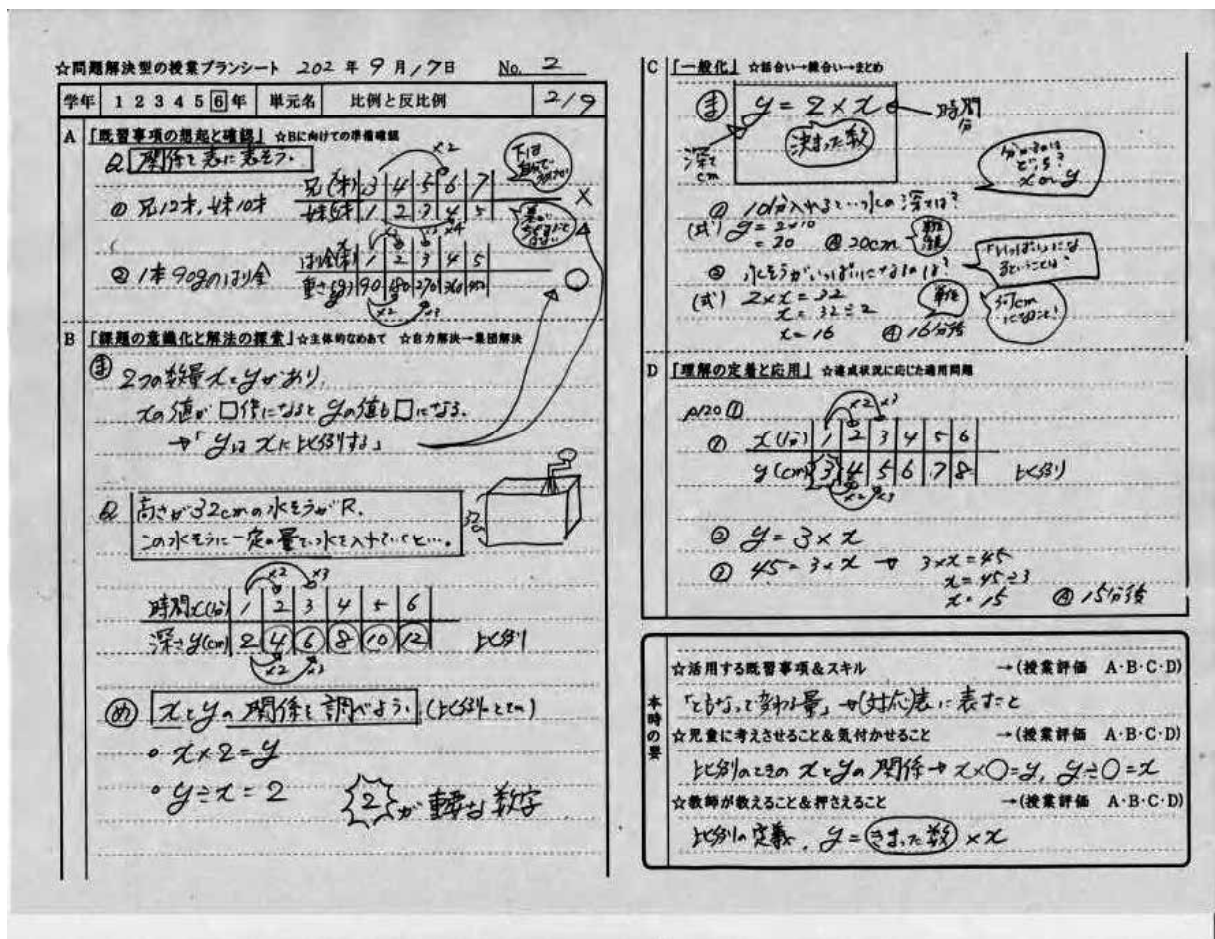 ☆問題解決型の授業プランシート 202 年 9 月 17日 No. 2
学年 1 2 3 4 5 6 年 単元名 比例と反比例 2/9
A 「既習事項の想起と確認」 ☆Bに向けての準備確認
Q 関係を表に表そう。
① 兄12才,妹10才
兄(才) 3 4 5 6 7
妹(才) 1 2 3 4 5
×2
×
② 1本90gのはり金
はり金(本) 1 2 3 4 5
重さ(g) 90 180 270 360 450
×2 ×3
B 「課題の意識化と解法の探索」 ☆主体的なめあて ☆自力解決→集団解決
ま 2つの数量xとyがあり,
xの値が□倍になるとyの値も□になる.
→「yはxに比例する」
Q 高さが32cmの水そうがR.
この水そうに一定の量で水を入れていくと….
32cm
×2 ×3
時間x(分) 1 2 3 4 5 6
深さy(cm) 2 4 6 8 10 12 比例
×2 ×3
め xとyの関係を調べよう. (比例のとき)
・x×2=y
・y÷x=2 2が重要な数字
C 「一般化」 ☆話合い→練合い→まとめ
ま y=2×x 時間 分
決まった数
深さ cm
分かるのはどっち? x or y
① 10分入れると水の深さは?
(式) y=2×10
=20 答 20cm
② 水そうがいっぱいになるのは?
「いっぱい」になるということは?
(式) 2×x=32
x=32÷2
x=16 答 16分後
D 「理解の定着と応用」 ☆達成状況に応じた適用問題
p120 ①
×2 ×3
① x(分) 1 2 3 4 5 6
y(cm) 3 4 5 6 7 8 比例
×2 ×3
② y=3×x
③ 45=3×x → 3×x=45
x=45÷3
x=15 答 15分後
本時の要
☆活用する既習事項&スキル →(授業評価 A・B・C・D)
「ともなって変わる量」→(対応)表に表すこと
☆児童に考えさせること&気付かせること →(授業評価 A・B・C・D)
比例のときのxとyの関係→x×○=y, y÷○=x
☆教師が教えること&押さえること →(授業評価 A・B・C・D)
比例の定義. y=きまった数×x